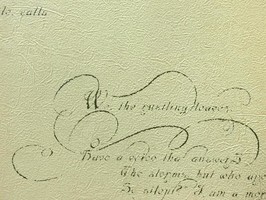 We, the rustling leaves,
Have a voice tha answers
The storms, but who are
So silent? I am a mer